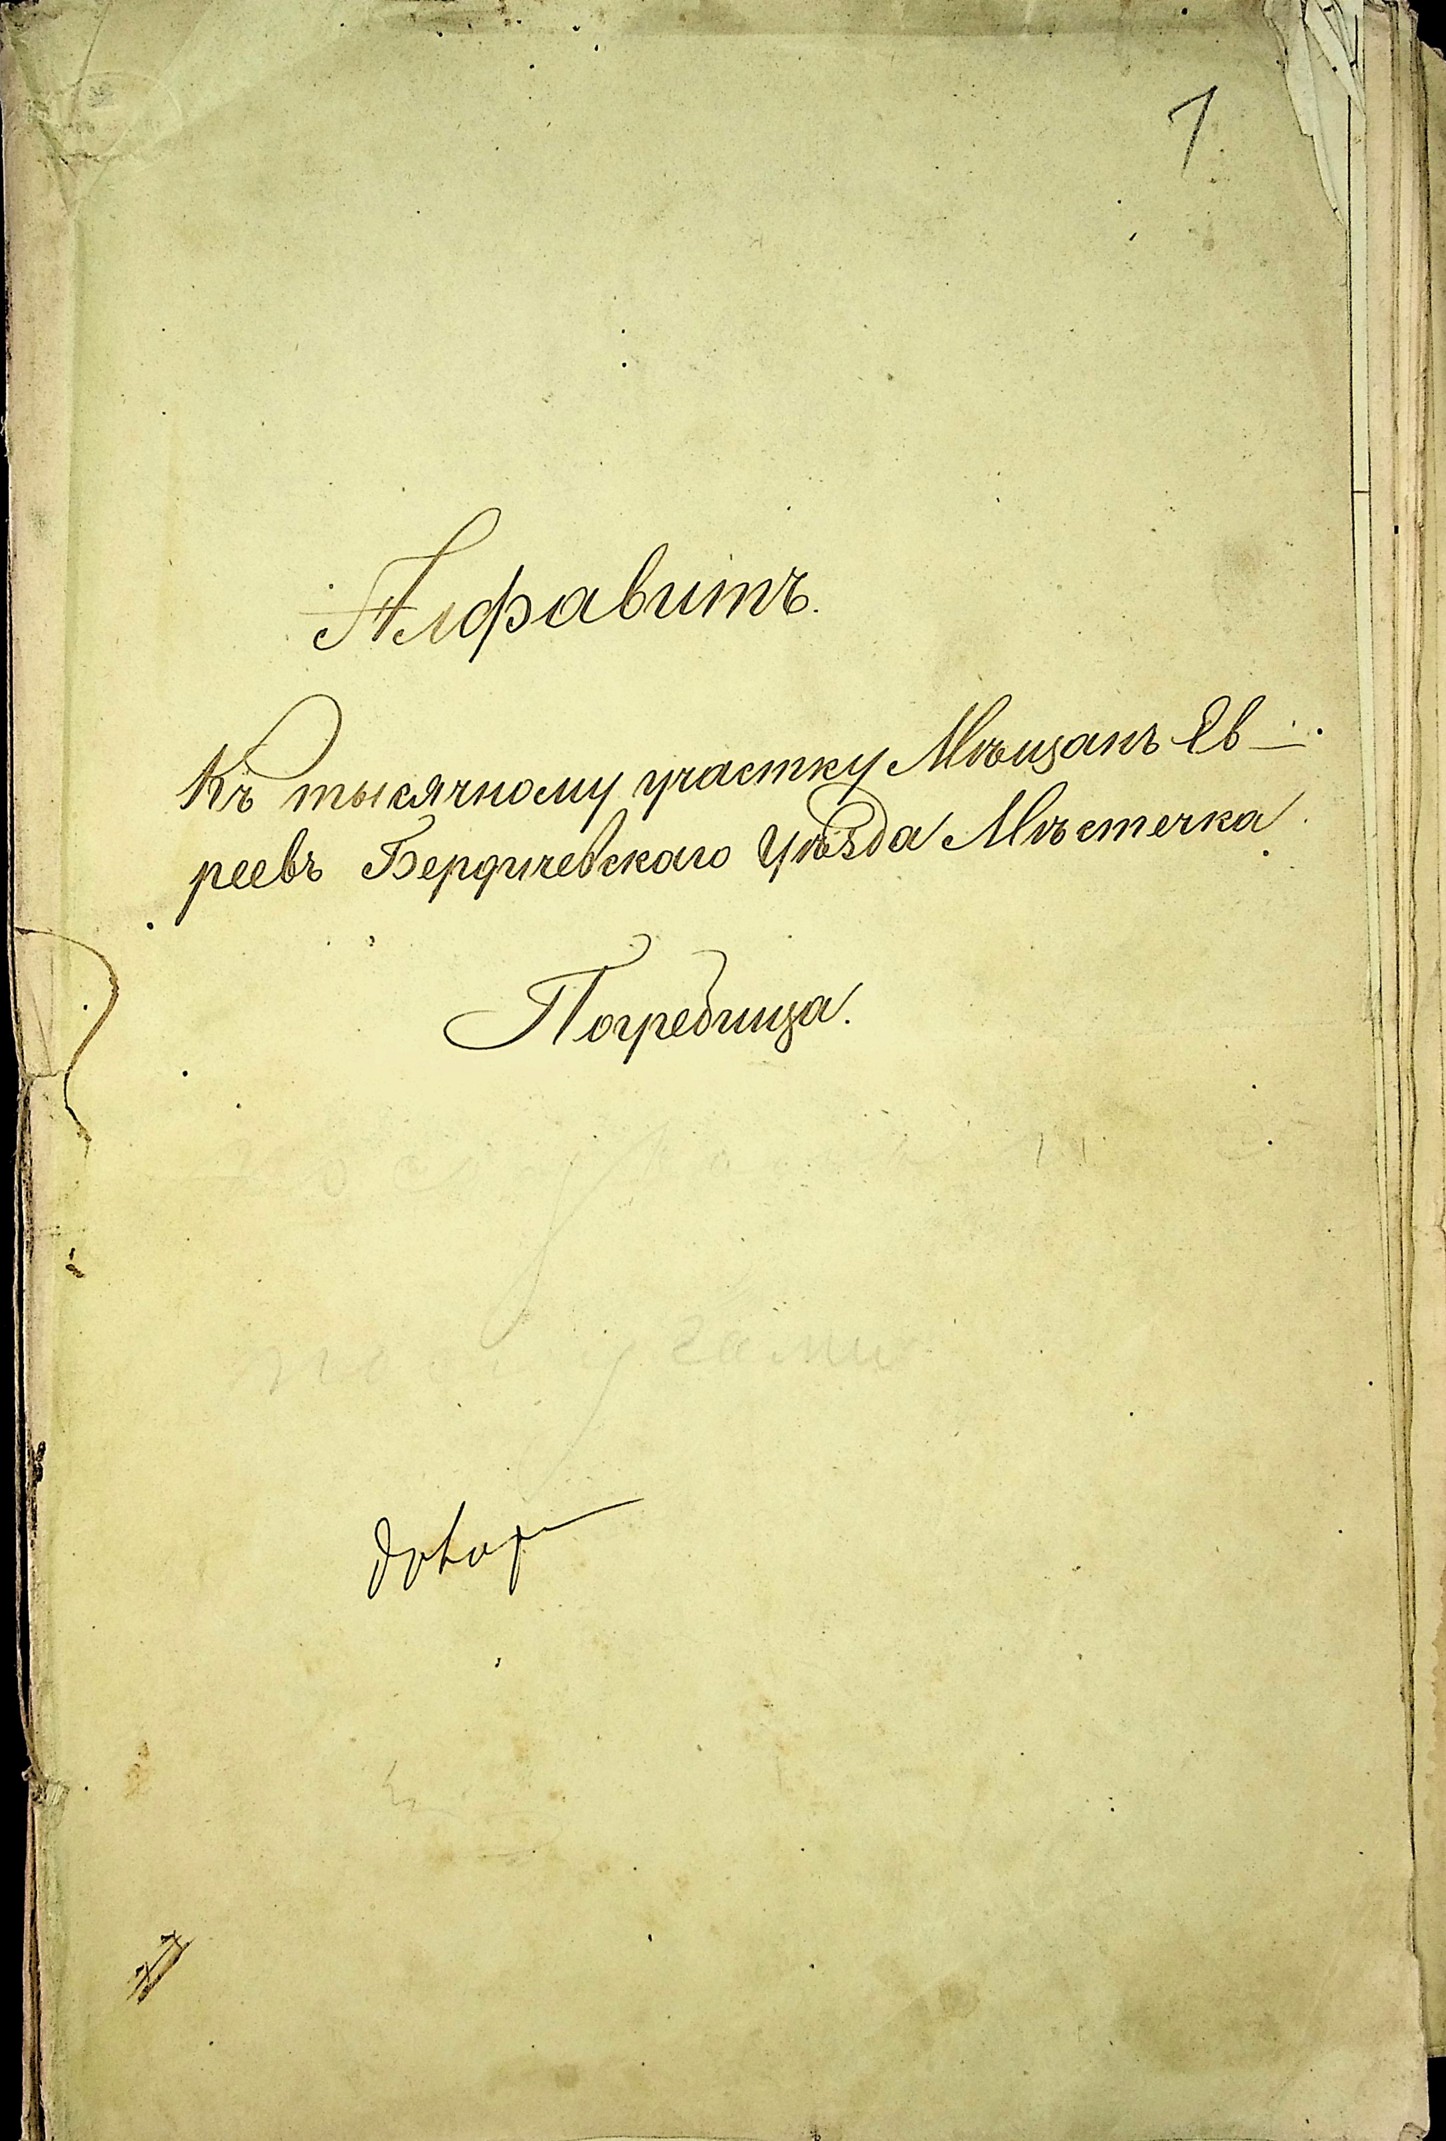 1
Алфавитъ.
Къ тысячному участку Мѣщанъ Ев—
реевъ Бердичевскаго Уѣзда Мѣстечка
Погребища.